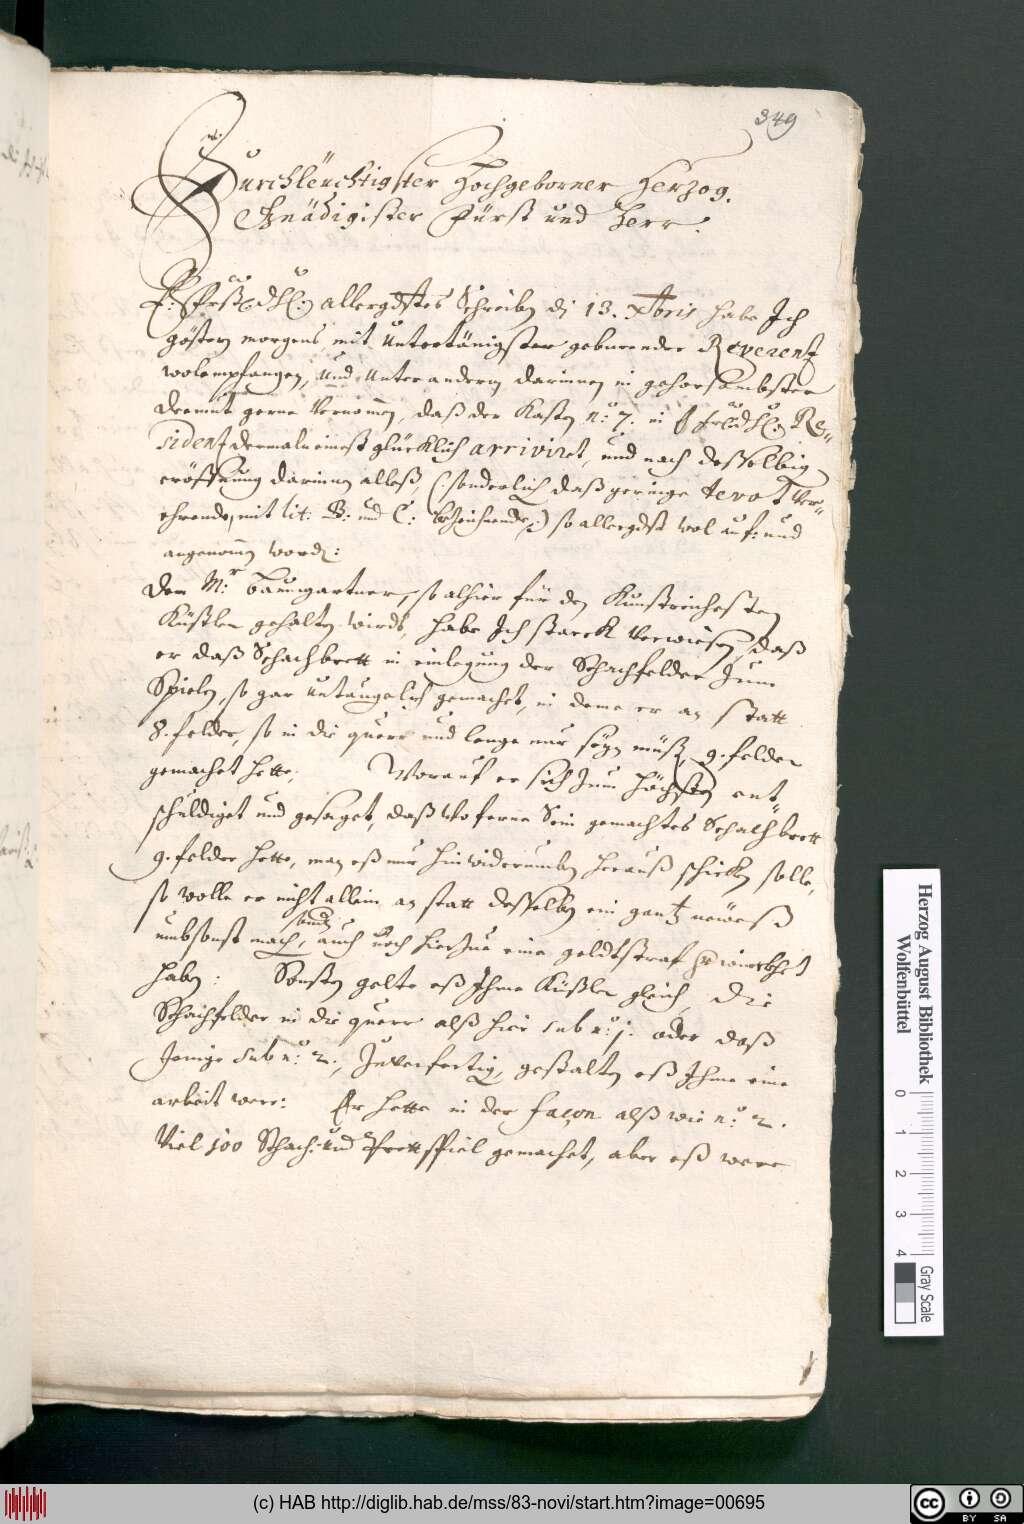 349
Durchleüchtigster Hochgeborner Herzog.
Gnädigister Fürst und Herr:
allergdstes Schreiben dj 13. Xbris habe Ich
gestern morgens mit unterthänigster geburender Reverentz
wolempfangen, und unter andern darinnen in gehorsambster
Demut gerne vernommen, daß der Kasten n:o 7. in Re-
sidentz dermaln einest glücklich arriviret, und nach desselbigen
eröffnung darinnen alleß, (: sonderlich daß geringe devot ver-
ehrende, mit lit: B: und C: bezeichnende :) so allergdst wol auf: und
angenommen worden:
Dem M:r Baumgartner, so alhier für den Kunstreichesten
Küstler gehalten wirdt, habe Ich starck verwiesen, daß
er daß Schachbrett in einlegung der Schachfelder zum
Spielen, so gar untaugelich gemachet, in deme er an statt
8. felder, so in die quere und lenge nur seyn müß, 9. felder
gemachet hette, Worauf er sich zum höchsten ent-
schuldiget und gesaget, daß wo ferne Sein gemachtes Schachbrett
9. felder hette, man eß nur hinwiderumben herauß schicken solle,
so wolle er nicht allein an statt desselben ein gantz neweß
umbsonst machen, auch noch hierzue eine geldtstraf verwürckhet
haben: Sonsten gelte eß Ihme Küstler gleich, die
Schachfelder in die quere alß hie sub n:o 1. oder daß
Jenige sub n:o 2., zuverfertigen, gestalten eß Ihme eine
arbeit were: Er hette in der façon alß wie n:o 2.
Viel 100 Schach: und Prettspiel gemachet, aber eß were
Herzog August Bibliothek
Wolfenbüttel
0 1 2 3 4
Gray Scale
(c) HAB http://diglib.hab.de/mss/83-novi/start.htm?image=00695
cc BY SA